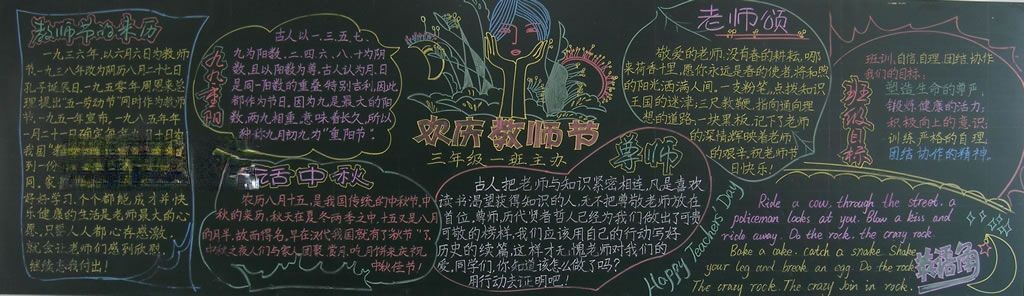 教师节的来历
一九三六年,以六月六日为教师
节.一九三八年改为阴历八月二十七日
孔子诞辰日.一九五零年周恩来总
理提出"五一劳动节"同时作为教师
节.一九五一年宣布,一九八五年
一月二十一日
月十日为
我国
到一份
好好学习,个个都能成才.并快
乐健康的生活是老师最大的心
愿.只要人人都心存感激,
就会让老师们感到欣慰,
继续为我付出!
九九重阳
古人以一、三、五、七、
九为阳数,二、四、六、八、十为阴
数,且以阳数为尊.古人认为月、日
是同一阳数的重叠特别吉利,因此
都作为节日.因为九是最大的阳
数,两九相重,意味着长久,所以
称九月初九为"重阳节".
话中秋
农历八月十五,是我国传统的中秋节,中
秋的来历:秋天在夏冬两季之中,十五又是八月
的月半.故而得名.早在汉代我国就有了"秋节"了.
中秋之夜人们与家人团聚赏月、吃月饼来庆祝
中秋佳节!
欢庆教师节
三年级一班主办
尊师
古人把老师与知识紧密相连,凡是喜欢
读书渴望获得知识的人,无不把尊敬老师放在
首位.尊师,历代贤者哲人已经为我们做出了可贵
可敬的榜样.我们应该用自己的行动写好
历史的续篇,这样才无愧老师对我们的
爱.同学们,你知道该怎么做了吗?
用行动去证明吧!
Happy Teacher's Day
老师颂
敬爱的老师:没有春的耕耘,哪
来荷香千里,愿你永远是春的使者,将和煦
的阳光洒满人间.一支粉笔,点拨知识
王国的迷津;三尺教鞭,指向通向理
想的道路;一块黑板,记下了老师
的深情,辉映着老师
的艰辛,祝老师节
日快乐!
班级目标
班训:自信 自理 团结 协作
我们的目标:
塑造生命的尊严,
锻炼健康的活力,
积极向上的意识,
训练严格的自理
团结协作的精神.
Ride a cow. through the street. a
policeman looks at you. Blow a kiss and
ride away. Do the rock. the crazy rock.
Bake a cake. catch a snake. Shake
your leg and break an egg. Do the rock
The crazy rock. The crazy join in rock.
英语角